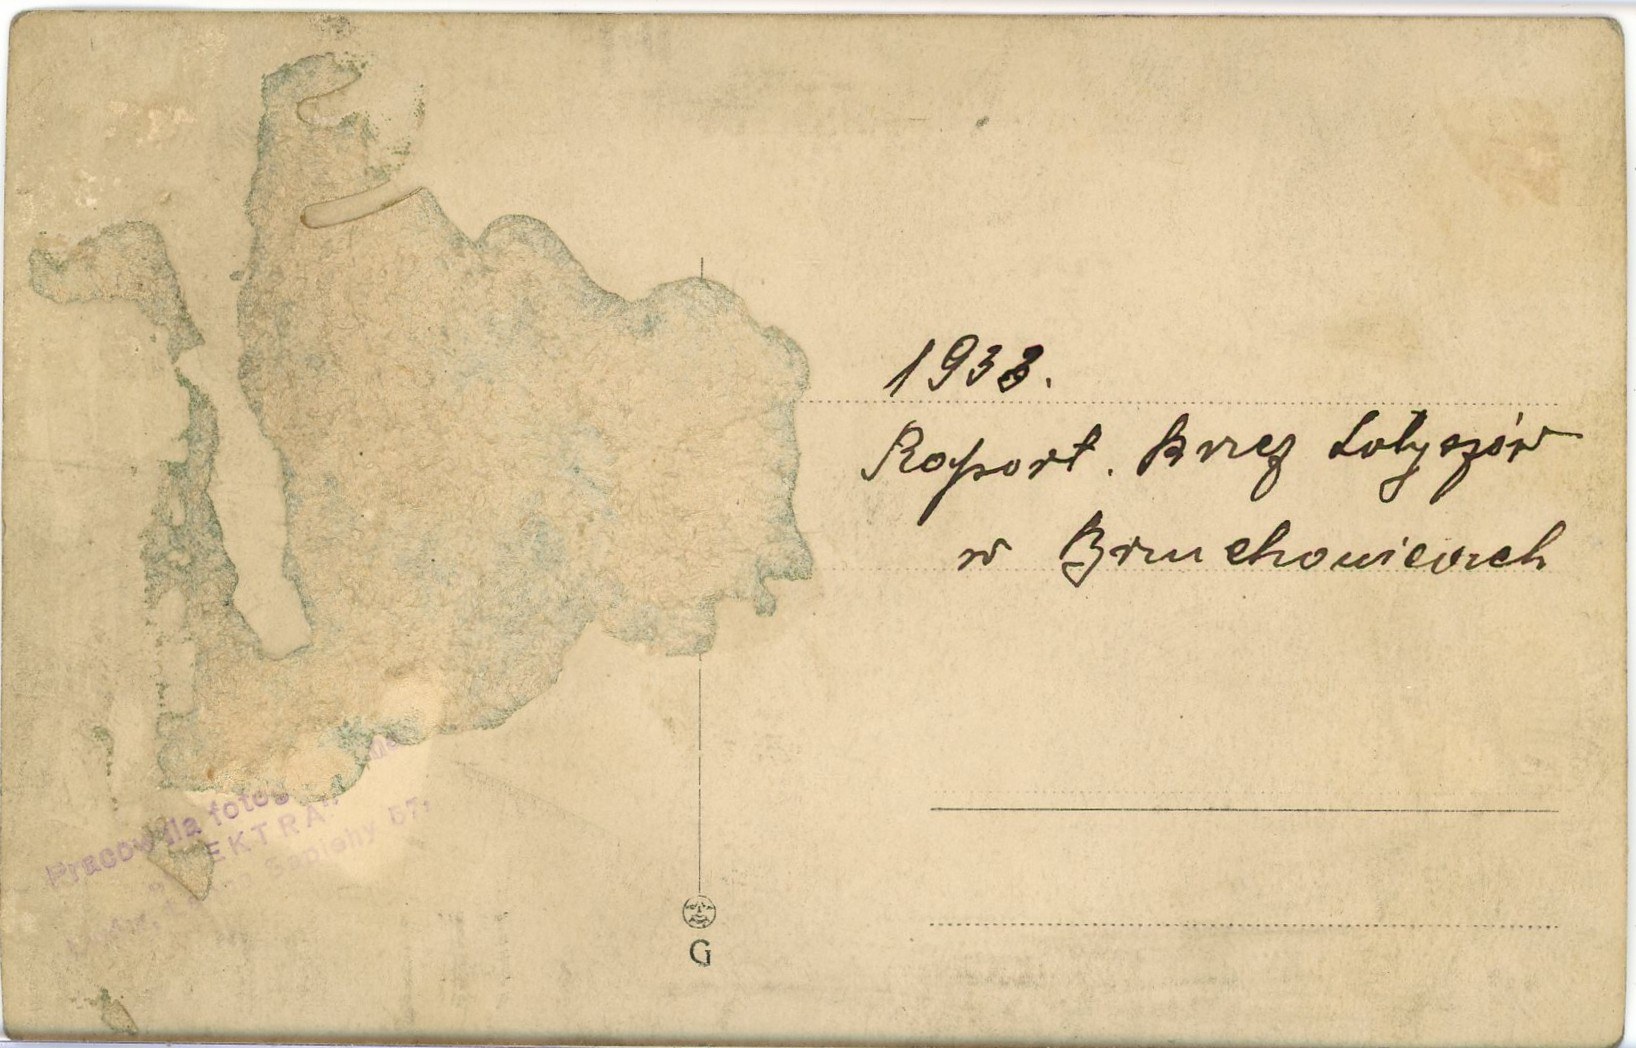 1933.
Raport. przez Łotyszów
w Brzuchowicach
Pracownia fotog
EKTRA
Sapiehy 57.
G